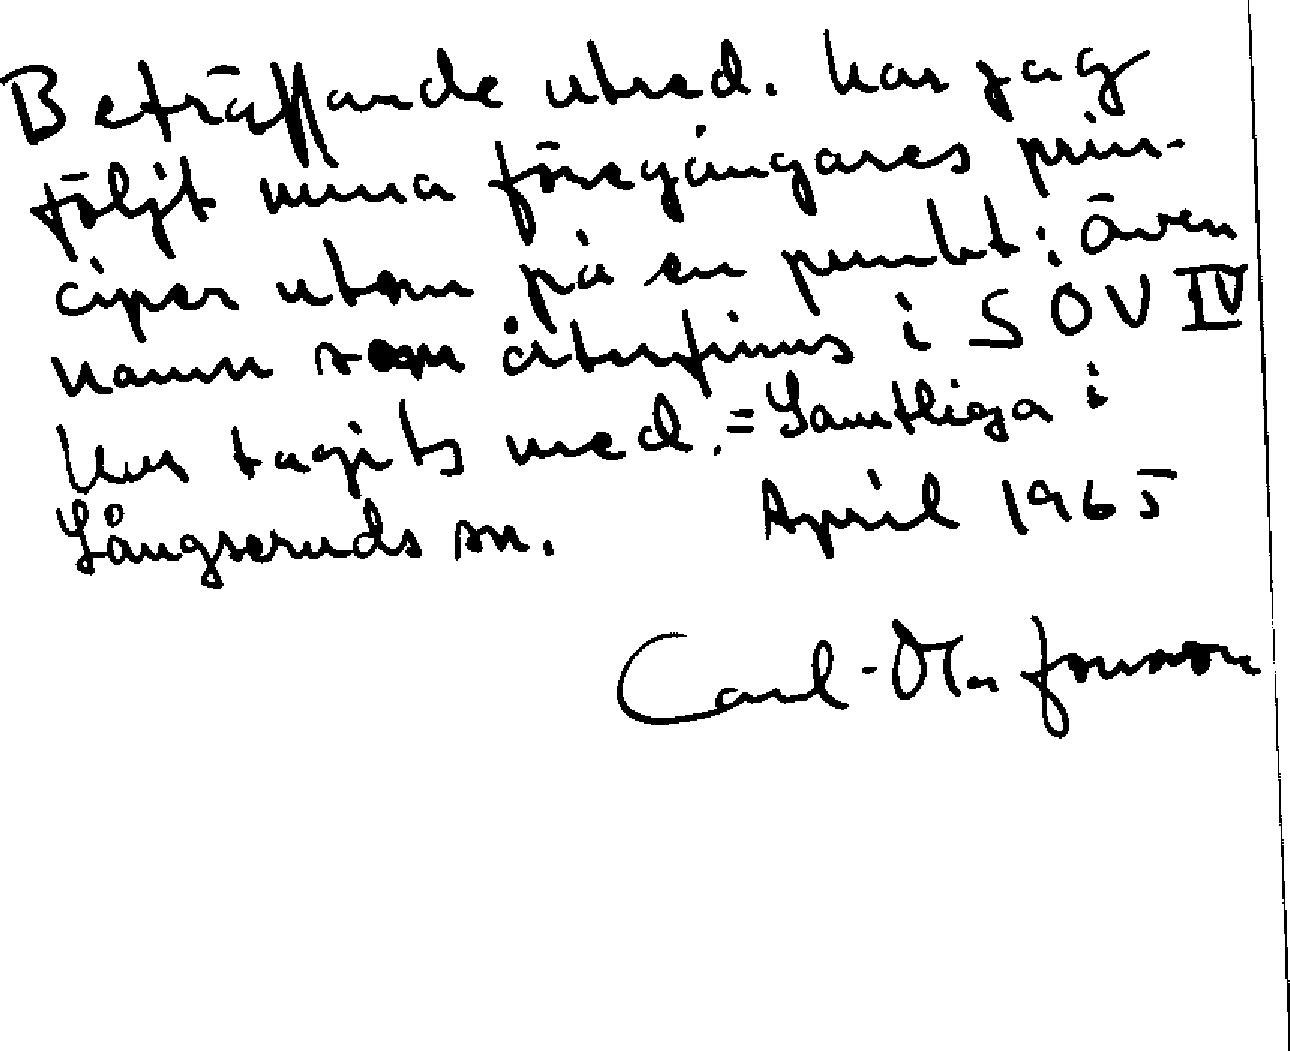 Beträffande utred. har jag
följt mina föregångares prin-
ciper utom på en punkt: även
namn som återfinns i SOV IV
har tagits med. = Samtliga i
Långseruds sn. April 1965
Carl-Olov Jonsson